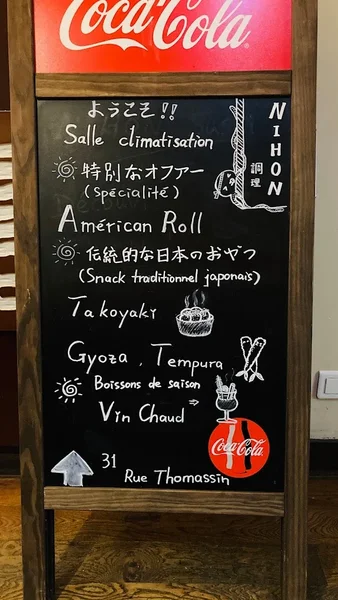 Coca-Cola
ようこそ!!
Salle climatisation
NIHON
調理
特別なオファー
(Spécialité)
Américan Roll
伝統的な日本のおやつ
(Snack traditionnel japonais)
Takoyaki
Gyoza , Tempura
Boissons de saison
Vin Chaud
Coca-Cola
31
Rue Thomassin